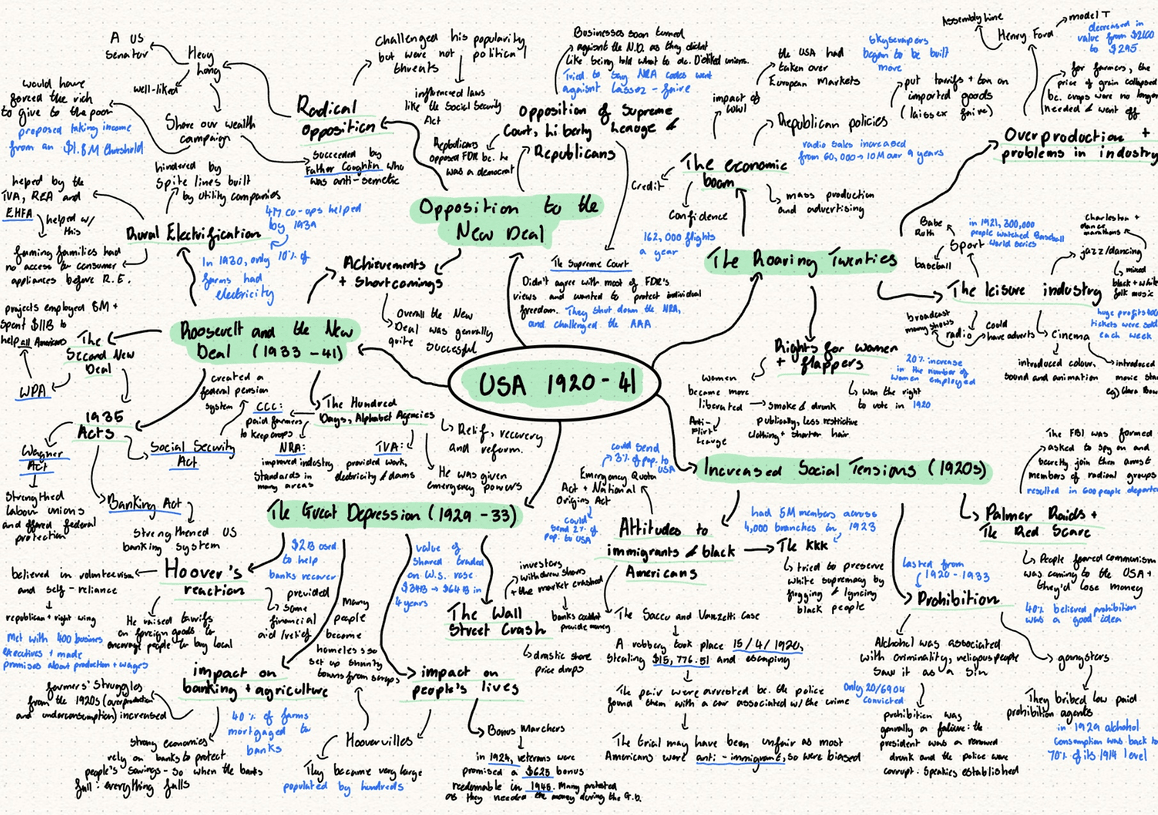 USA 1920 - 41
Opposition to the
New Deal
Radical
opposition
Challenged his popularity
but were not political
threats
influenced laws
like the Social Security
Act
Huey
Long
A US
Senator
well-liked
Share our wealth
campaign
would have
forced the rich
to give to the poor
proposed taking income
from an $1.8M threshold
Succeeded by
Father Coughlin who
was anti-semetic
Opposition of Supreme
Court, Liberty League &
Republicans
Republicans
opposed FDR bc. he
was a democrat
Businesses soon turned
against the N.D. as they didnt
like being told what to do. Disliked unions.
Tried to say NRA codes went
against lassez - faire
The Supreme Court
Didn't agree with most of FDR's
views and wanted to protect individual
freedom. They shut down the NRA,
and challenged the AAA.
Roosevelt and the New
Deal (1933 - 41)
Achievements
+ Shortcomings
Overall the New
Deal was generally
quite successful
Rural Electrification
hindered by
Spite lines built
by utility companies
helped by the
TVA, REA and
EHFA
helped w/
this
farming families had
no access to consumer
appliances before R.E.
417 co-ops helped
by 1939
In 1930, only 10% of
farms had
electricity
The
Second New
Deal
projects employed 8M +
spent $11B to
help all Americans
WPA
1935
Acts
Wagner
Act
Strengthed
labour unions
and offered federal
protection
Banking Act
strengthened US
banking system
Social Security
Act
created a
federal pension
system
The Hundred
Days, Alphabet Agencies
CCC:
paid farmers
to keep crops
NRA:
improved industry
Standards in
many areas
TVA:
provided work,
electricity & dams
Relief, recovery
and reform.
He was given
Emergency powers
The Great Depression (1929 - 33)
Hoover's
reaction
believed in volunteerism
and self - reliance
republican + right wing
Met with 400 business
executives + made
promises about production + wages
He raised tarrifs
on foreign goods to
encourage people to buy local
$2B used
to help
banks recover
provided
some
financial
aid
impact on
banking + agriculture
farmers' struggles
from the 1920s (overproduction
and underconsumption) increased
40% of farms
mortgaged to
banks
strong economies
rely on banks to protect
people's savings - so when the banks
fall, everything falls
Many
people
became
homeless so
set up shanty
towns from scraps
Hoovervilles
They became very large
populated by hundreds
impact on
people's lives
Bonus Marchers
in 1924, veterans were
promised a $625 bonus
redeemable in 1945. Many protested
as they needed the money during the G.D.
value of
shares traded
on W.S. rose
4 years
The Wall
Street Crash
investors
withdrew shares
+ the market crashed
banks couldnt
provide money
drastic share
price drops
The Roaring Twenties
The economic
boom
impact of
WW1
the USA had
taken over
European Markets
Republican policies
put tarrifs + tax on
imported goods
(laissez faire)
Skyscrapers
began to be built
more
radio sales increased
from 60,000 → 10M over 9 years
mass production
and advertising
Credit
Confidence
162,000 flights
a year
Overproduction +
problems in industry
Henry Ford
Assembly line
model T
decreased in
value from $2160
to $295
for farmers, the
price of grain collapsed
bc. crops were no longer
needed & went off
The leisure industry
Sport
Babe
Ruth
baseball
in 1921, 300,000
people watched Baseball
World Series
jazz/dancing
Charleston +
dance
marathons
mixed
black + white
folk music
radio
broadcast
many shows
could
have adverts
Cinema
huge profits 100M
tickets were sold
each week
introduced colour,
sound and animation
introduced
movie stars
Rights for women
+ flappers
women
became more
liberated
Anti-
Flirt
League
smoke & drunk
publically, less restrictive
clothing + shorter hair
won the right
to vote in 1920
20% increase
in the number of
women employed
Increased Social Tensions (1920s)
Attitudes to
immigrants & black
Americans
Emergency Quota
Act + National
Origins Act
could send
3% of pop. to
USA
could
send 2% of
pop. to USA
The KKK
had 5M members across
4,000 branches in 1923
tried to preserve
white supremacy by
flogging & lynching
black people
The Sacco and Vanzetti Case
A robbery took place 15/4/1920,
stealing $15,776.51 and escaping
The pair were arrested bc. the police
found them with a car associated w/ the crime
The trial may have been unfair as most
Americans were anti - immigrant, so were biased
Palmer Raids +
The Red Scare
The FBI was formed
asked to spy on and
secretly join then arrest
members of radical groups
resulted in 600 people deported
People feared communism
was coming to the USA +
they'd lose money
Prohibition
lasted from
1920 - 1933
40% believed prohibition
was a good idea
Alchohol was associated
with criminality, religious people
saw it as a sin
Only 20/6904
convicted
prohibition was
generally a failure: the
president was a renowned
drunk and the police were
corrupt. Speakies established
gangsters
They bribed low paid
prohibition agents
in 1929 alchohol
Consumption was back to
70% of its 1914 level